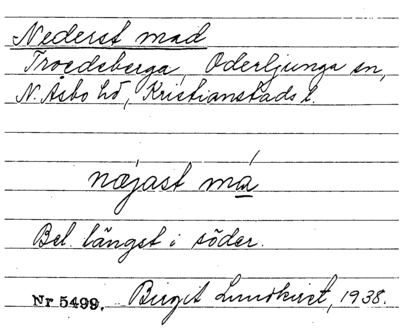 Nederst mad
Troedsberga, Oderljunga sn,
N. Åsbo hd, Kristianstads l.
næjast má
Bel. längst i söder.
Nr 5499. Birgit Lundkvist, 1938.